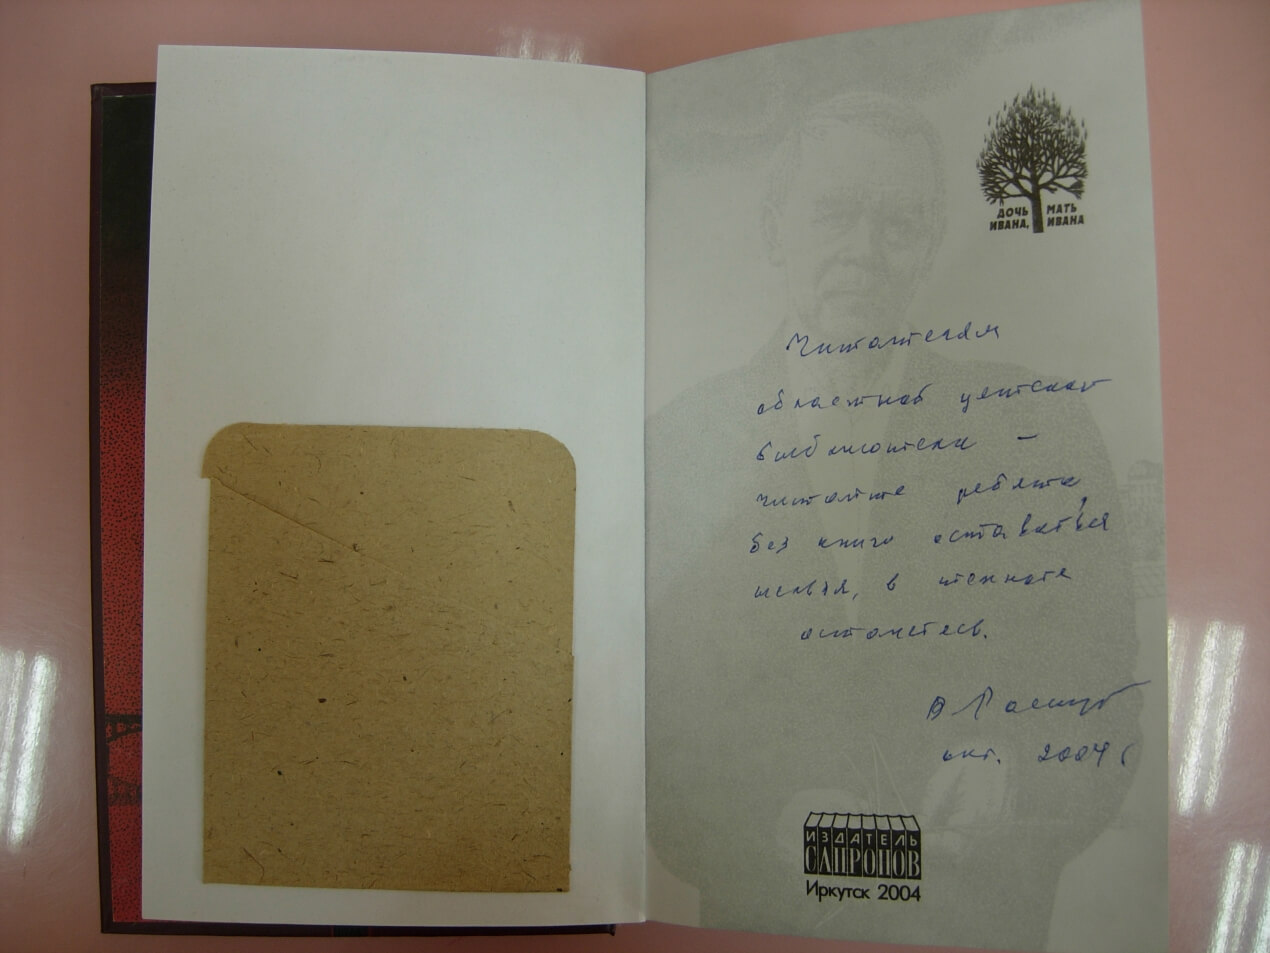 ДОЧЬ МАТЬ
ИВАНА, ИВАНА
Читателям
областной детской
библиотеки –
читайте ребята,
без книги оставаться
нельзя, в темноте
останетесь.
В Распут
окт. 2004 г
ИЗДАТЕЛЬ
САПРОНОВ
Иркутск 2004